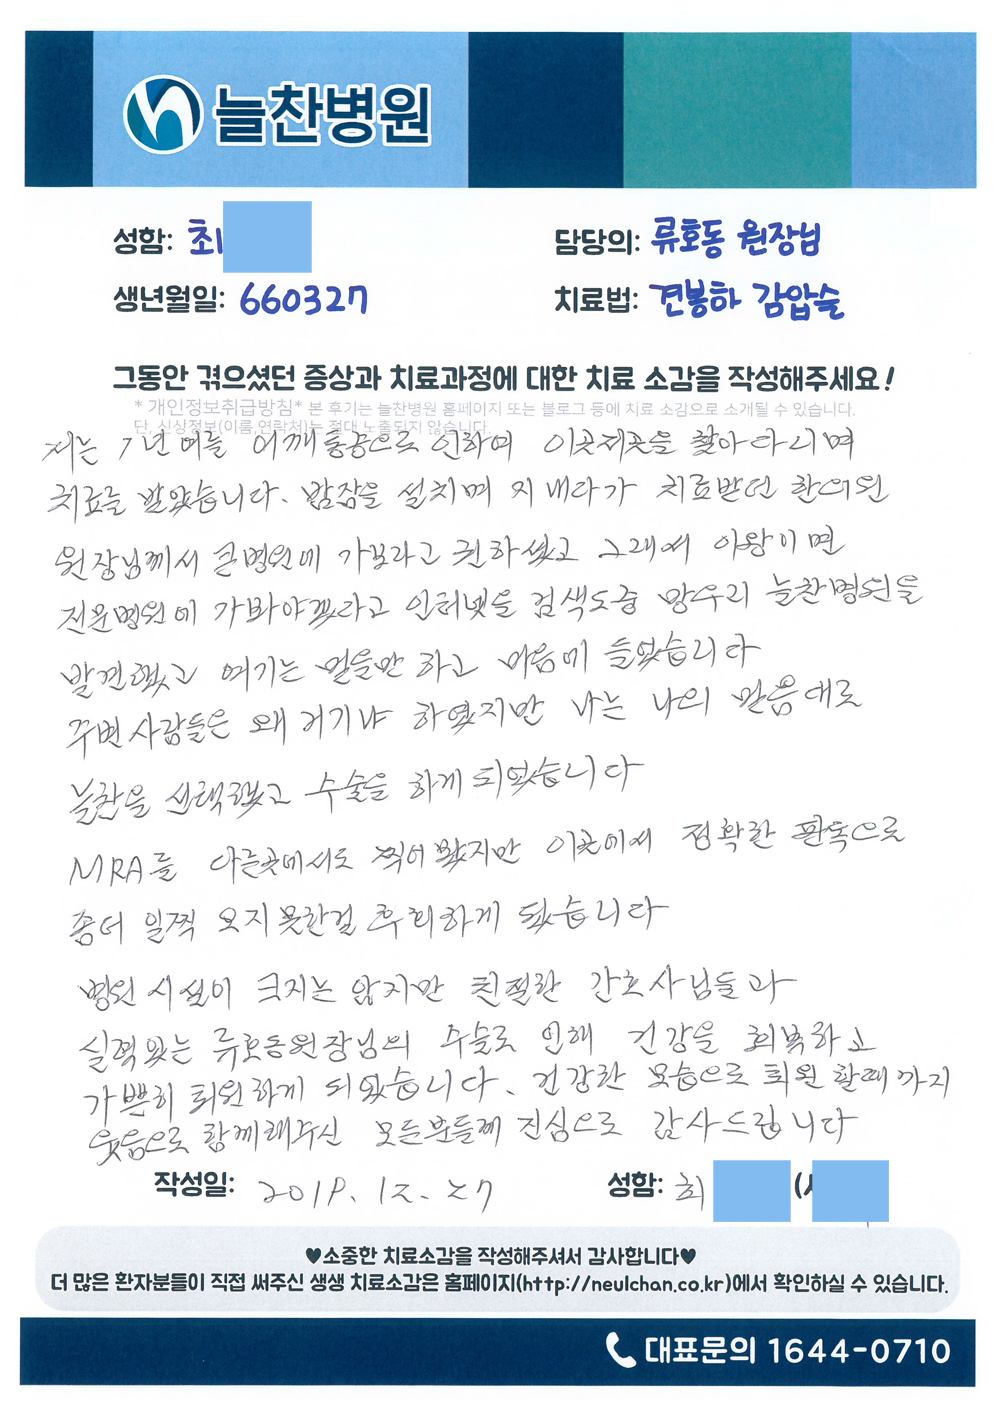 늘찬병원
성함: 최
담당의: 류호동 원장님
생년월일: 660327
치료법: 견봉하 감압술
그동안 겪으셨던 증상과 치료과정에 대한 치료 소감을 작성해주세요!
* 개인정보취급방침* 본 후기는 늘찬병원 홈페이지 또는 블로그 등에 치료 소감으로 소개될 수 있습니다.
단, 신상정보(이름,연락처)는 절대 노출되지 않습니다.
저는 7년 여를 어깨통증으로 인하여 이곳저곳을 찾아다니며
치료를 받았습니다. 밤잠을 설치며 지내다가 치료받던 한의원
원장님께서 큰병원에 가보라고 권하셨고 그래서 이왕이면
전문병원에 가봐야겠라고 인터넷을 검색도중 망우리 늘찬병원을
발견했고 여기는 믿을만 하고 마음에 들었습니다
주변사람들은 왜 거기냐 하였지만 나는 나의 믿음대로
늘찬을 선택했고 수술을 하게 되었습니다
MRA를 다른곳에서도 찍어 봤지만 이곳에서 정확한 판독으로
좀더 일찍 오지못한걸 후회하게 됐습니다
병원 시설이 크지는 않지만 친절한 간호사님들과
실력있는 류호동원장님의 수술로 인해 건강을 회복하고
가쁜히 퇴원하게 되었습니다. 건강한 모습으로 퇴원 할때까지
웃음으로 함께해주신 모든분들께 진심으로 감사드립니다
작성일: 2019. 12. 27
성함: 최
♥소중한 치료소감을 작성해주셔서 감사합니다♥
더 많은 환자분들이 직접 써주신 생생 치료소감은 홈페이지(http://neulchan.co.kr)에서 확인하실 수 있습니다.
대표문의 1644-0710